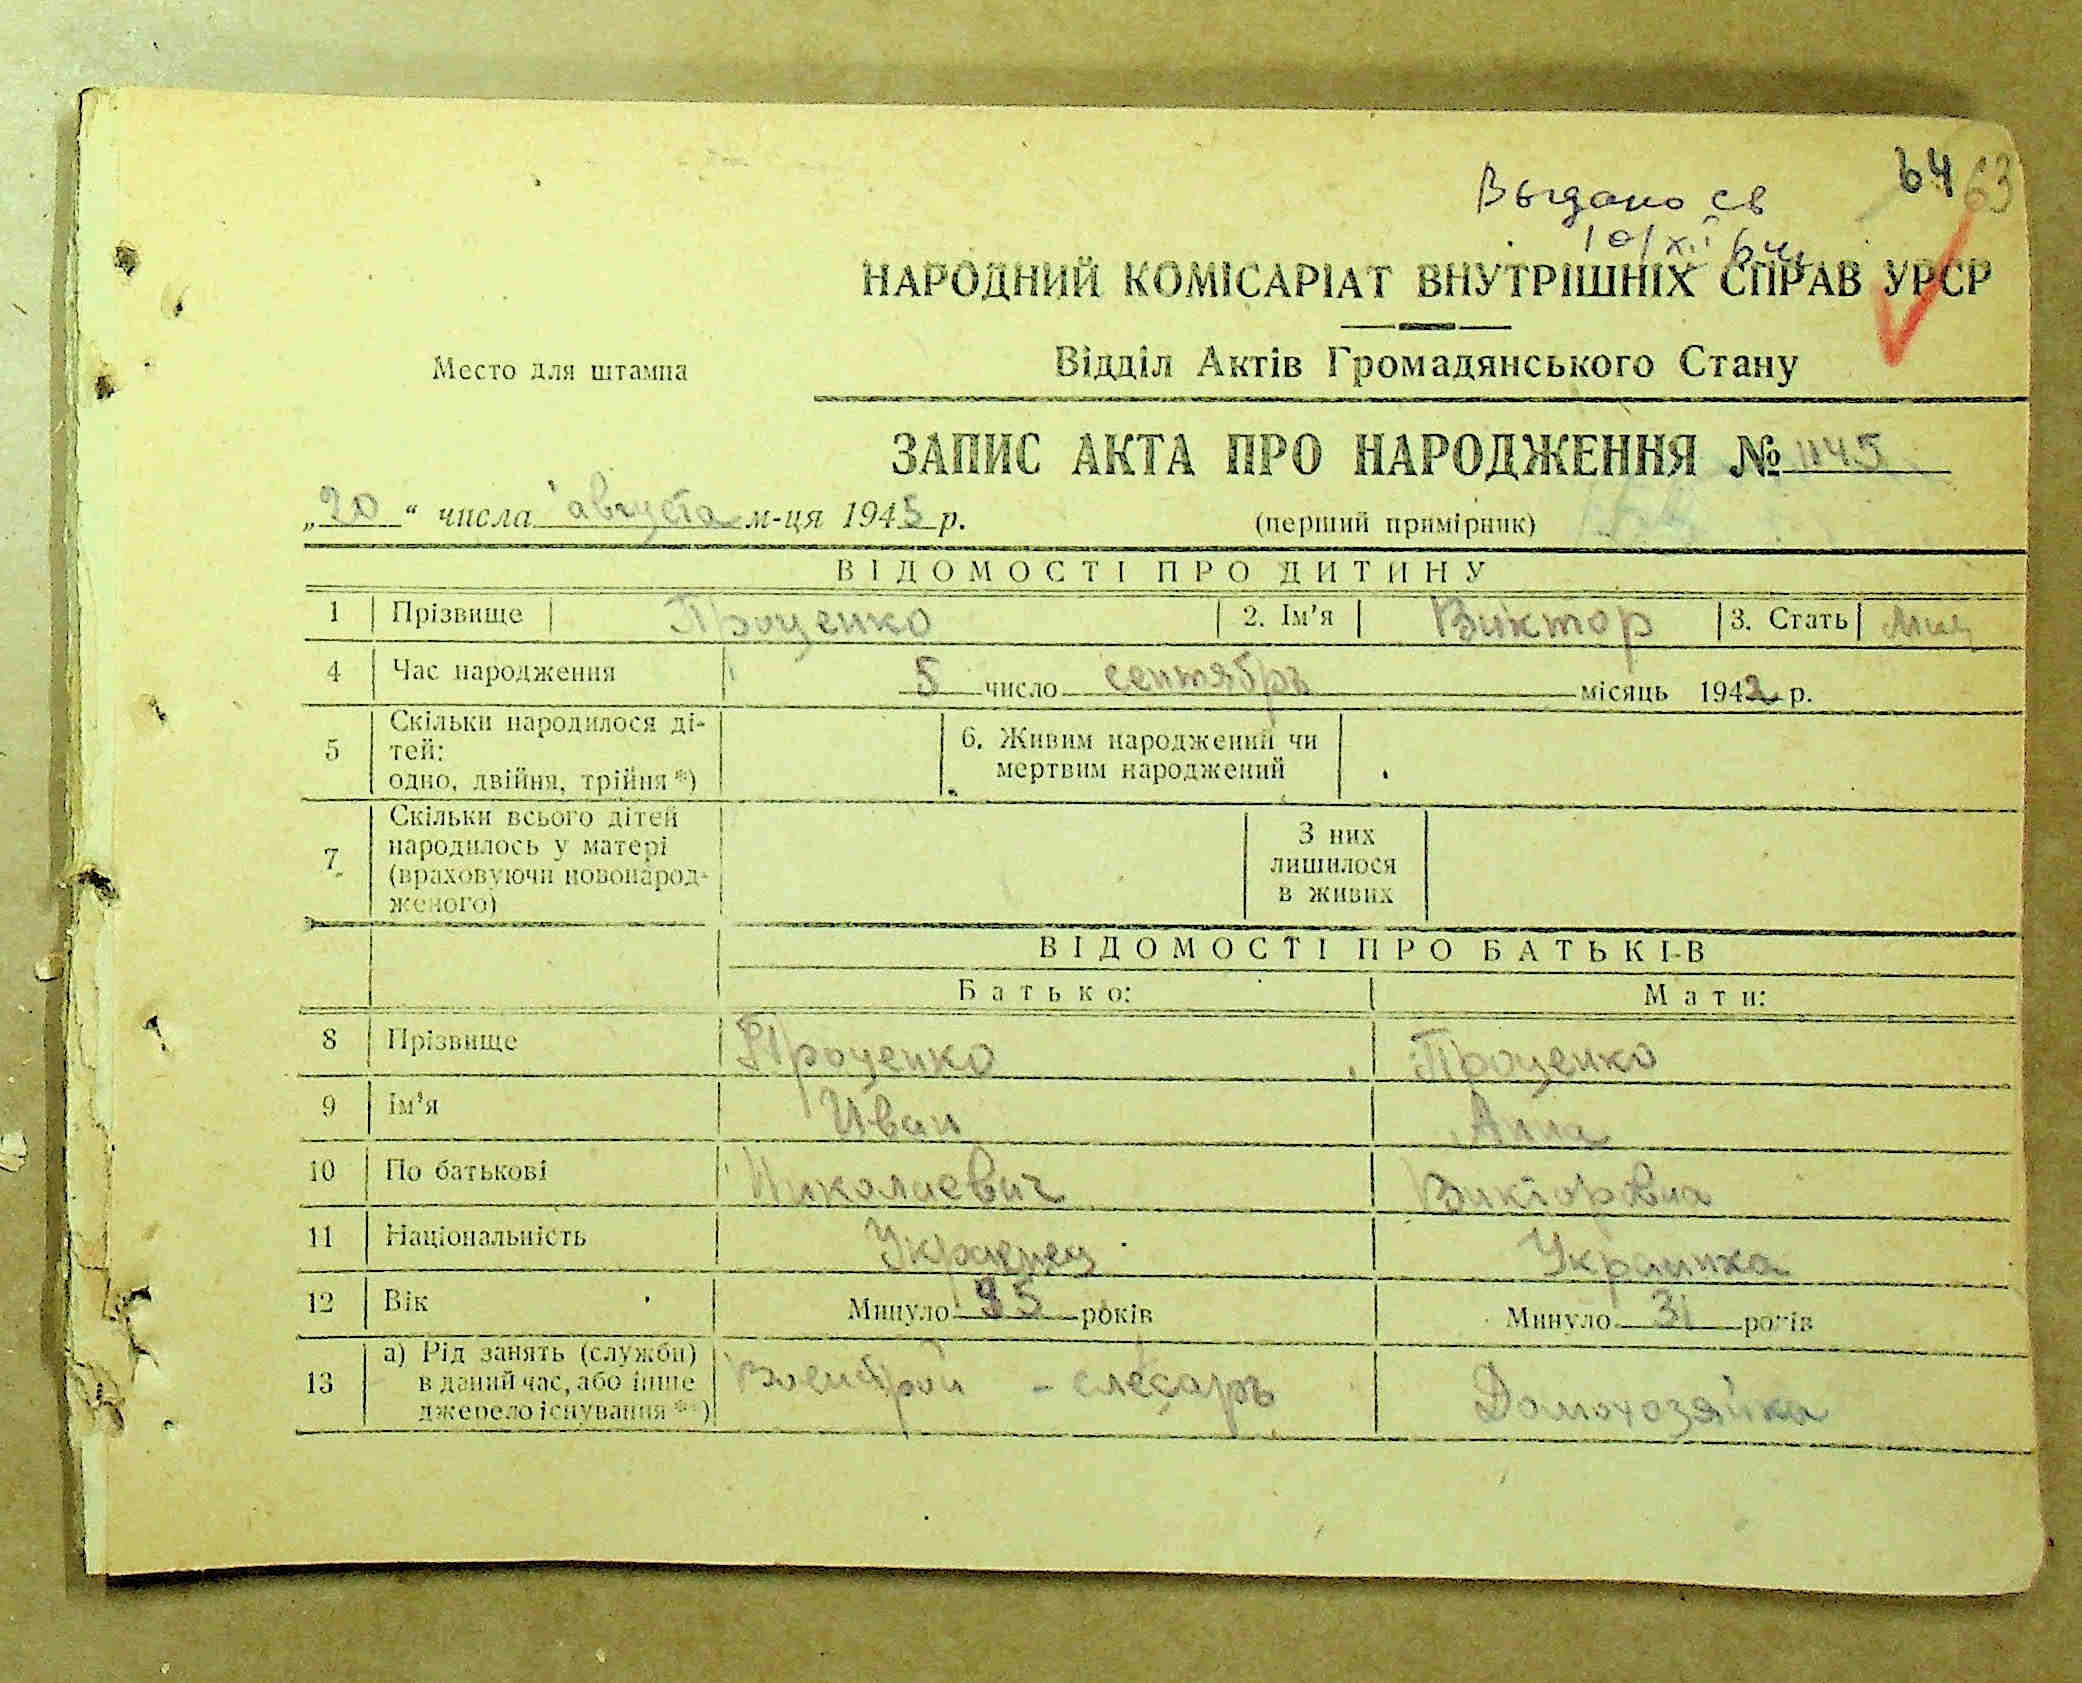 64 63
Выдано св
10/XII 64г
НАРОДНИЙ КОМІСАРІАТ ВНУТРІШНІХ СПРАВ УРСР
Место для штампа
Відділ Актів Громадянського Стану
ЗАПИС АКТА ПРО НАРОДЖЕННЯ № 1145
„20“ числа августа м-ця 1945 р.
(перший примірник)
ВІДОМОСТІ ПРО ДИТИНУ
1 Прізвище Проценко 2. Ім'я Виктор 3. Стать
4 Час народження 5 число сентябрь місяць 1942 р.
5 Скільки народилося ді-
тей:
одно, двійня, трійня *)
6. Живим народжений чи
мертвим народжений
7 Скільки всього дітей
народилось у матері
(враховуючи новонарод-
женого)
З них
лишилося
в живих
ВІДОМОСТІ ПРО БАТЬКІВ
Батько: Мати:
8 Прізвище Проценко Проценко
9 Ім'я Иван Анна
10 По батькові Николаевич Викторовна
11 Національність Украинец Украинка
12 Вік Минуло 35 років Минуло 31 років
13 а) Рід занять (служби)
в даний час, або інше
джерело існування **)
слесарь Домохозяйка